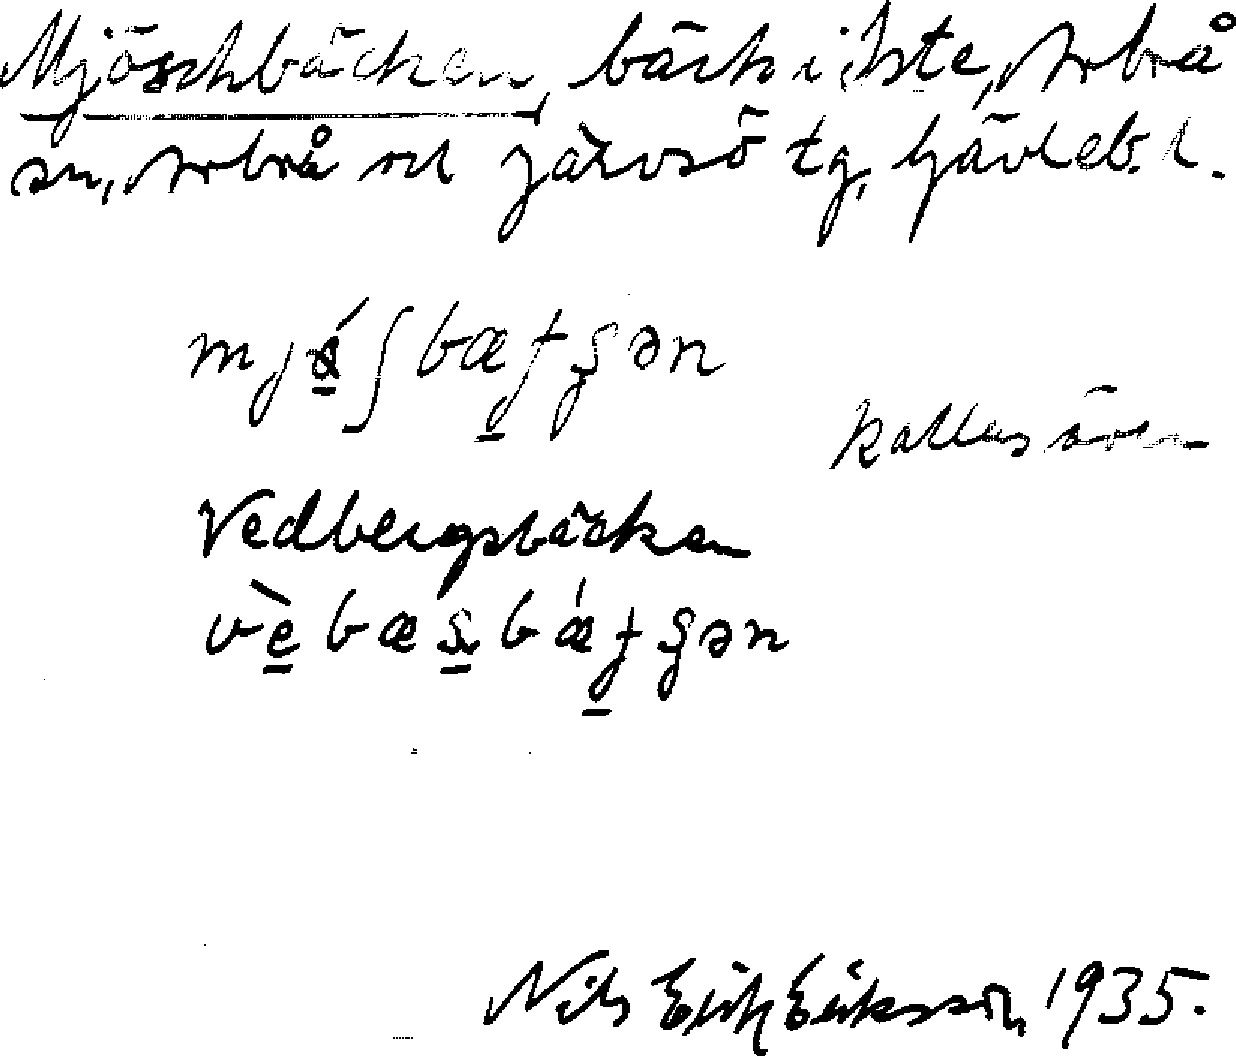 Mjöschbäcken, bäck i Iste, Arbrå
sn, Arbrå och Järvsö tg, Gävleb. l.
mjǿʃbæƫʂən
kallas även
Vedbergsbäcken
vèbæʂbǽƫʂən
Nils Erik Eriksson, 1935.